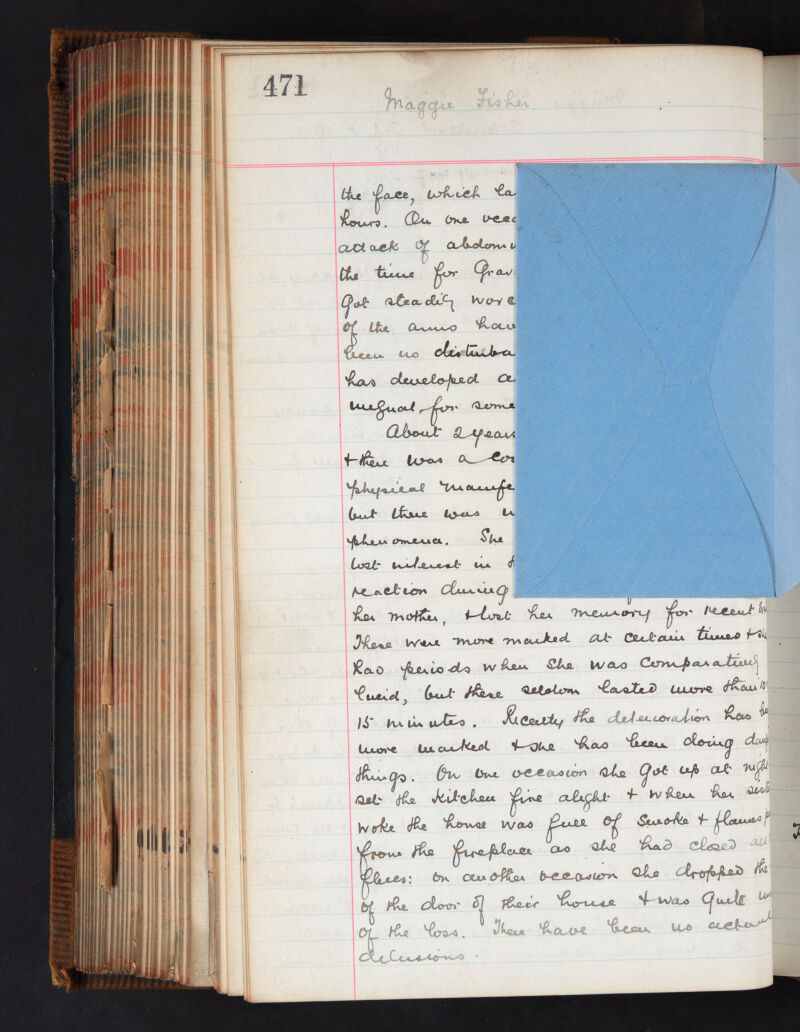 471
Maggie Fisher
the face, which la
hours. On one occa
attack of abdomi
the time for Grav
Got steadily worse
of the arms hav
been no disturba
has developed a
unequal, for some
About 2 years
& there was a con
physical manife
but there was n
phenomena. She
lost interest in
reaction during
her mother, & lost her memory for recent
These were more marked at certain times & sh
had periods when she was comparatively
lucid, but these seldom lasted more than 10
15 minutes. Recently the deterioration has be
more marked & she has been doing dang
things. On one occasion she Got up at night
set the Kitchen fire alight & when her sist
woke the house was full of smoke & flames
from the fireplace as she had closed all
flues: on another occasion she dropped the
of the door of their house & was quite un
of the loss. There have been no actual
delusions.